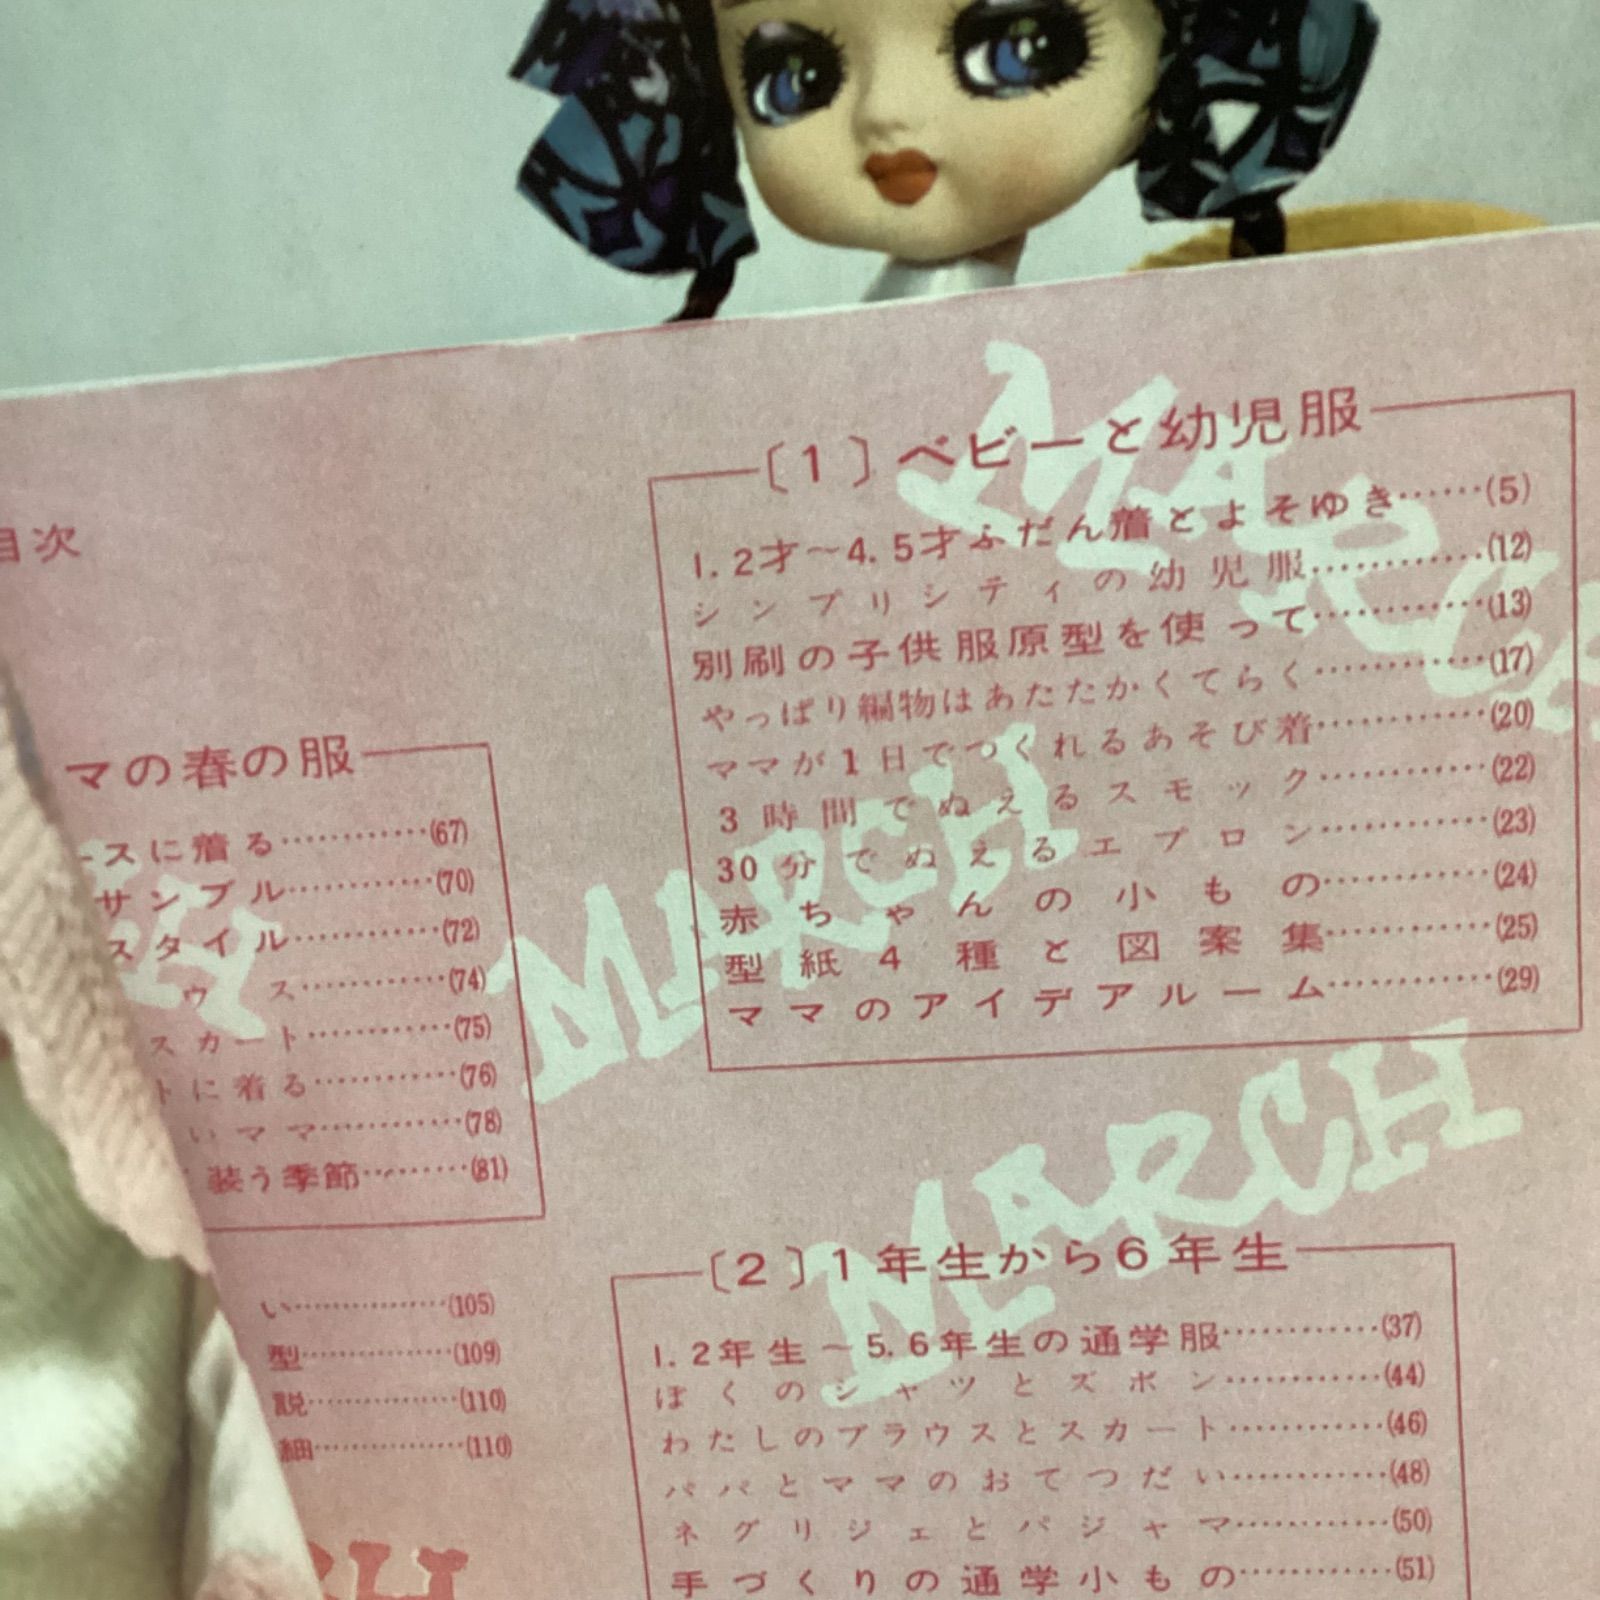 目次
〔1〕ベビーと幼児服
1.2才～4.5才ふだん着とよそゆき……(5)
シンプリシティの幼児服…………(12)
別刷の子供服原型を使って…………(13)
やっぱり編物はあたたかくてらく…………(17)
ママが1日でつくれるあそび着…………(20)
3時間でぬえるスモック…………(22)
30分でぬえるエプロン…………(23)
赤ちゃんの小もの…………(24)
型紙4種と図案集…………(25)
ママのアイデアルーム…………(29)
マの春の服
ースに着る…………(67)
サンプル…………(70)
スタイル…………(72)
ウス…………(74)
スカート…………(75)
トに着る…………(76)
いママ…………(78)
装う季節………(81)
い……………(105)
型……………(109)
説……………(110)
細……………(110)
〔2〕1年生から6年生
1.2年生～5.6年生の通学服…………(37)
ぼくのシャツとズボン…………(44)
わたしのブラウスとスカート…………(46)
パパとママのおてつだい…………(48)
ネグリジェとパジャマ…………(50)
手づくりの通学小もの…………(51)
MARCH
MARCH
MARCH